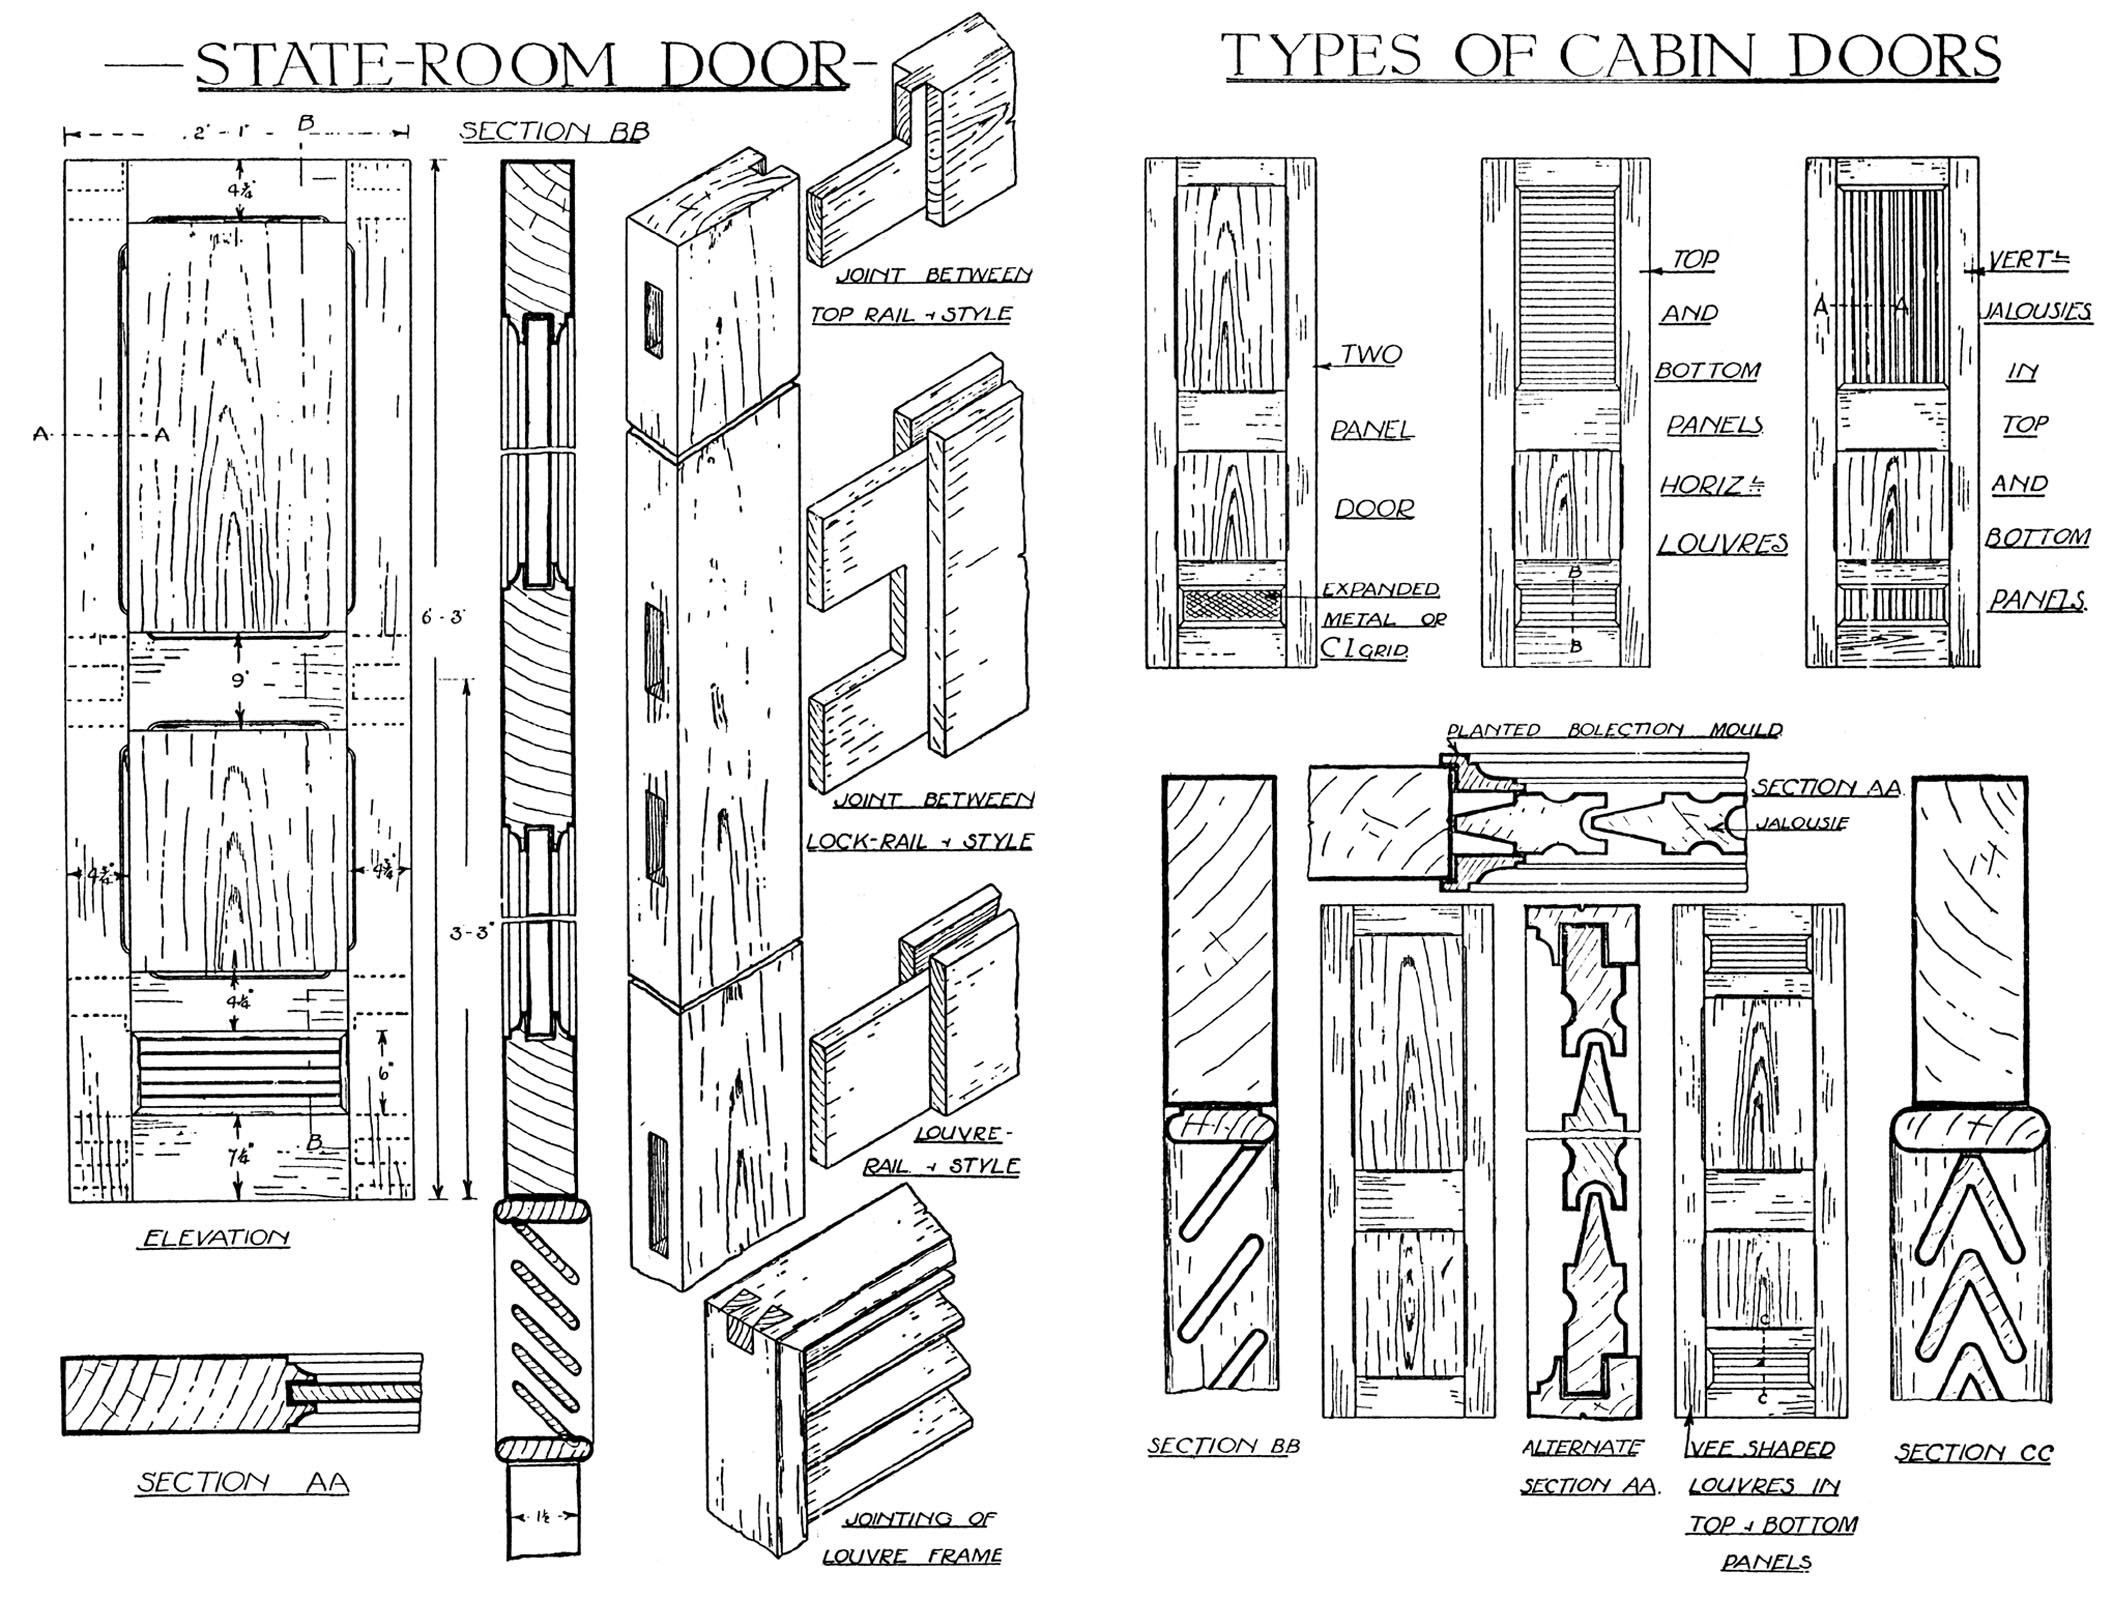 STATE-ROOM DOOR
2'-1"
B
SECTION BB
4¾"
A A
6'-3"
9"
3-3"
4¾" 4¾"
4¼"
6"
B
7¼"
ELEVATION
SECTION AA
1½
JOINT BETWEEN
TOP RAIL + STYLE
JOINT BETWEEN
LOCK-RAIL + STYLE
LOUVRE-
RAIL + STYLE
JOINTING OF
LOUVRE FRAME
TYPES OF CABIN DOORS
TWO
PANEL
DOOR
EXPANDED
METAL OR
C I GRID
TOP
AND
BOTTOM
PANELS
HORIZL
LOUVRES
B
B
VERTL
JALOUSIES
IN
TOP
AND
BOTTOM
PANELS.
A A
PLANTED BOLECTION MOULD
SECTION AA
JALOUSIE
SECTION BB
ALTERNATE
SECTION AA.
C
C
VEE SHAPED
LOUVRES IN
TOP + BOTTOM
PANELS
SECTION CC